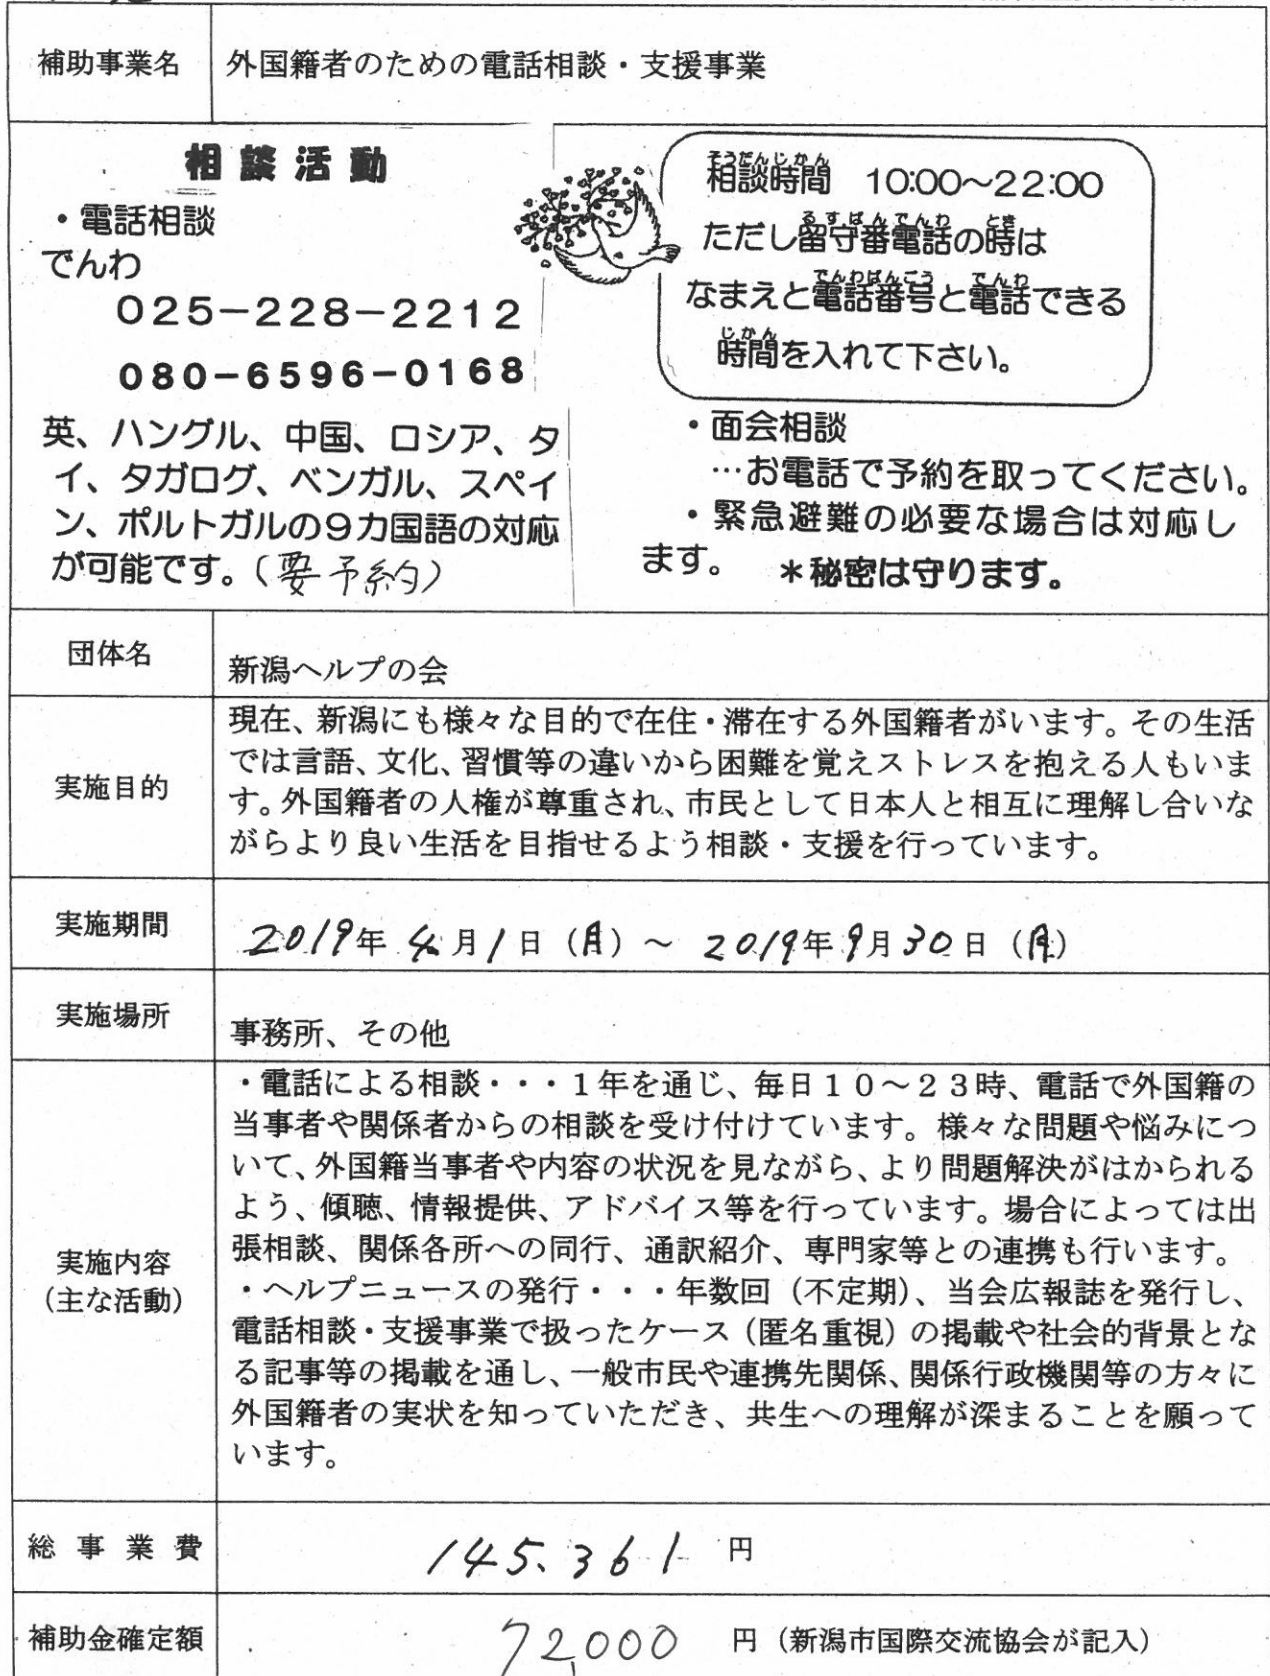 補助事業名
外国籍者のための電話相談・支援事業
相談活動
・電話相談
でんわ
025-228-2212
080-6596-0168
英、ハングル、中国、ロシア、タ
イ、タガログ、ベンガル、スペイ
ン、ポルトガルの9カ国語の対応
が可能です。(要予約)
そうだんじかん
相談時間 10:00～22:00
るすばんでんわ とき
ただし留守番電話の時は
でんわばんごう でんわ
なまえと電話番号と電話できる
じかん
時間を入れて下さい。
・面会相談
…お電話で予約を取ってください。
・緊急避難の必要な場合は対応し
ます。 *秘密は守ります。
団体名
新潟ヘルプの会
実施目的
現在、新潟にも様々な目的で在住・滞在する外国籍者がいます。その生活
では言語、文化、習慣等の違いから困難を覚えストレスを抱える人もいま
す。外国籍者の人権が尊重され、市民として日本人と相互に理解し合いな
がらより良い生活を目指せるよう相談・支援を行っています。
実施期間
2019年4月1日(月)～2019年9月30日(月)
実施場所
事務所、その他
実施内容
(主な活動)
・電話による相談・・・1年を通じ、毎日10～23時、電話で外国籍の
当事者や関係者からの相談を受け付けています。様々な問題や悩みにつ
いて、外国籍当事者や内容の状況を見ながら、より問題解決がはかられる
よう、傾聴、情報提供、アドバイス等を行っています。場合によっては出
張相談、関係各所への同行、通訳紹介、専門家等との連携も行います。
・ヘルプニュースの発行・・・年数回(不定期)、当会広報誌を発行し、
電話相談・支援事業で扱ったケース(匿名重視)の掲載や社会的背景とな
る記事等の掲載を通し、一般市民や連携先関係、関係行政機関等の方々に
外国籍者の実状を知っていただき、共生への理解が深まることを願って
います。
総事業費
145,361 円
補助金確定額
72,000 円(新潟市国際交流協会が記入)